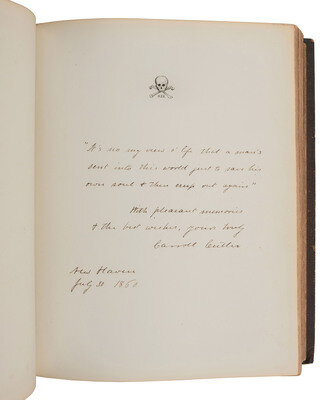 "It's no my view o' life that a man's
sent into this world just to save his
own soul & then creep out again"
With pleasant memories
& the best wishes, yours truly
Carroll Cutler
New Haven
July 30